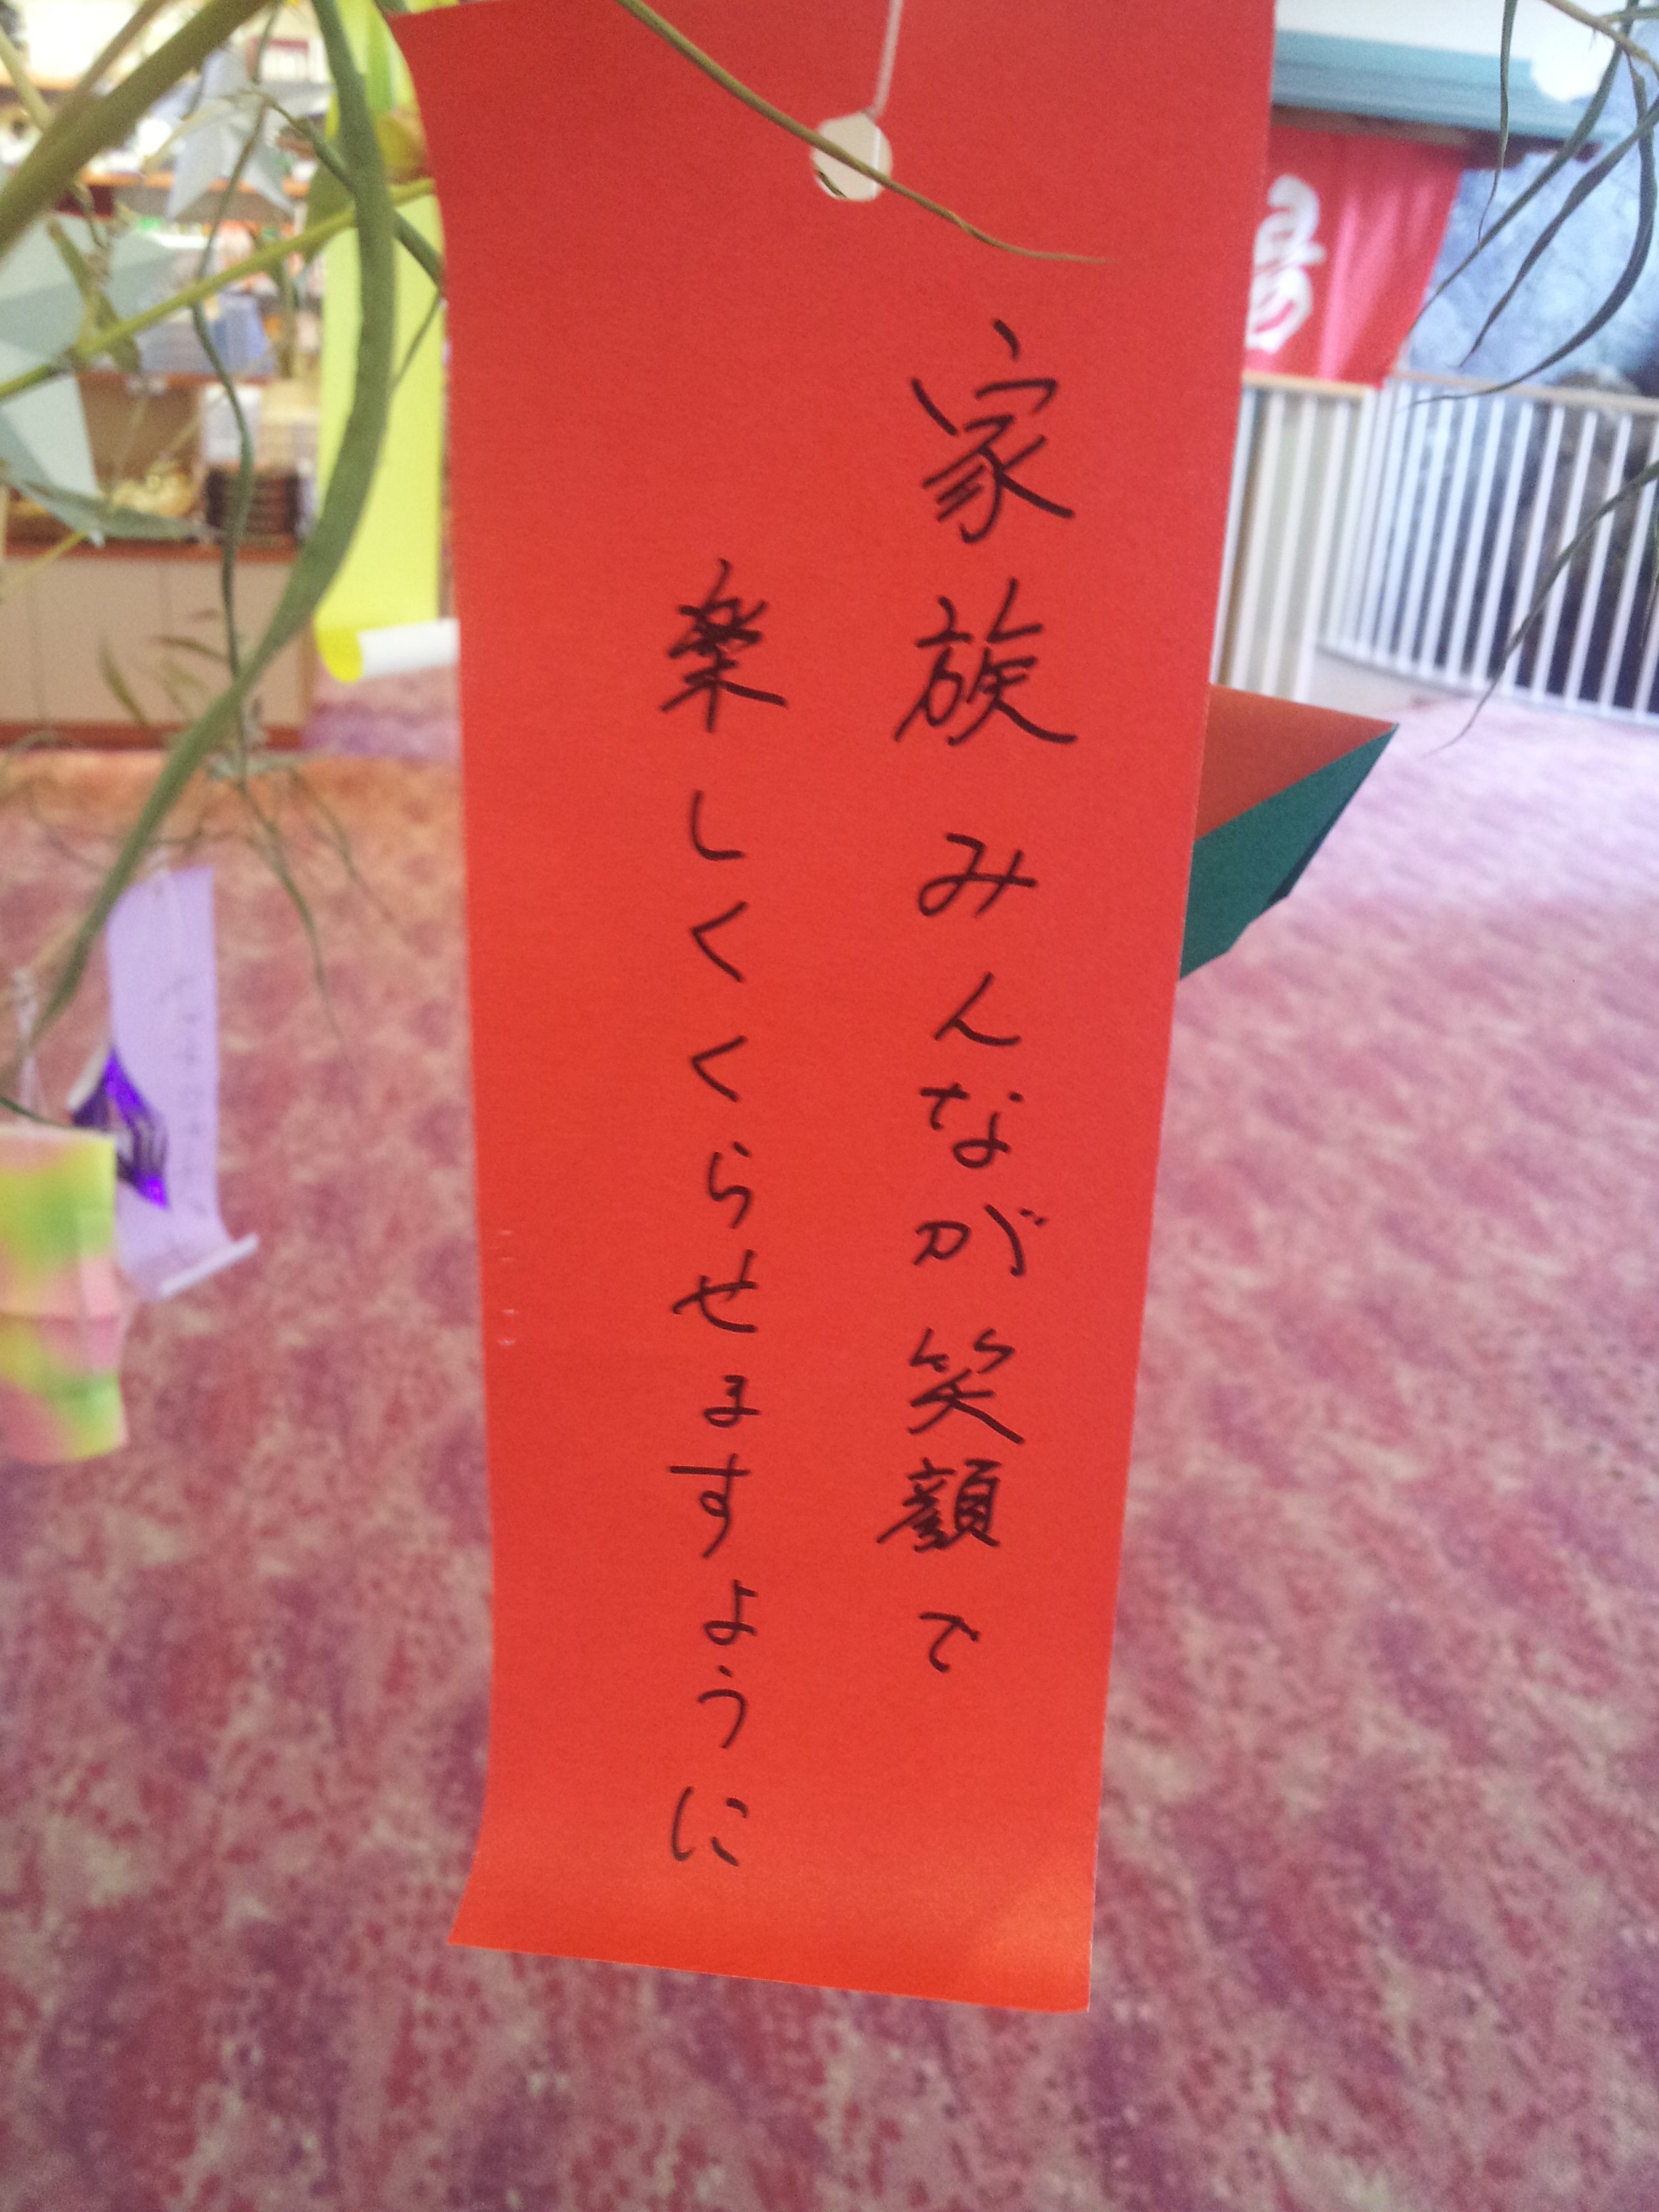 家族みんなが笑顔で
楽しくくらせますように